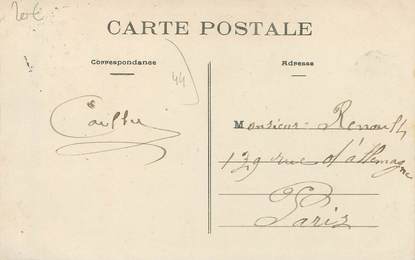 20€
CARTE POSTALE
Correspondance
Adresse
44
Monsieur Renault
179 rue d'allemagne
Paris